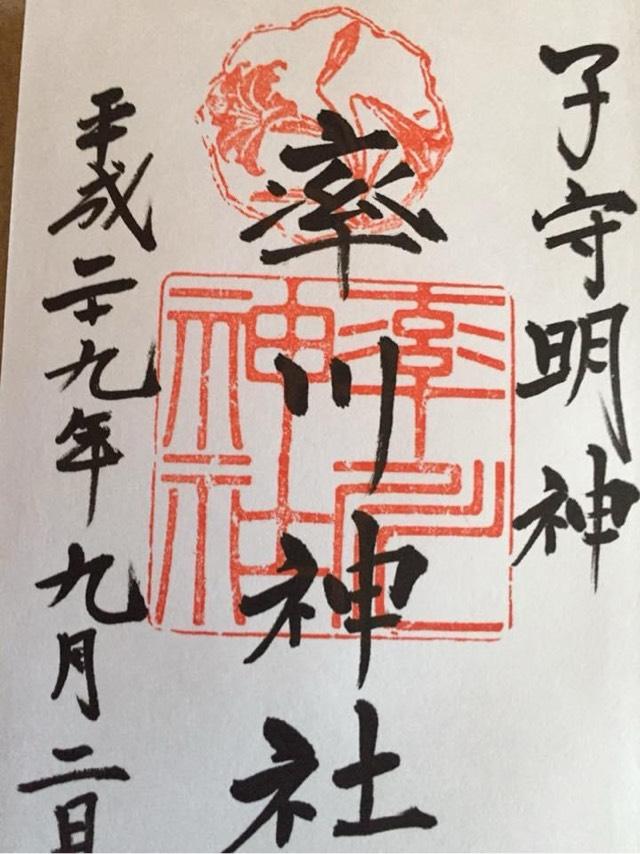 子守明神
率川神社
平成二十九年九月二日
率川神社